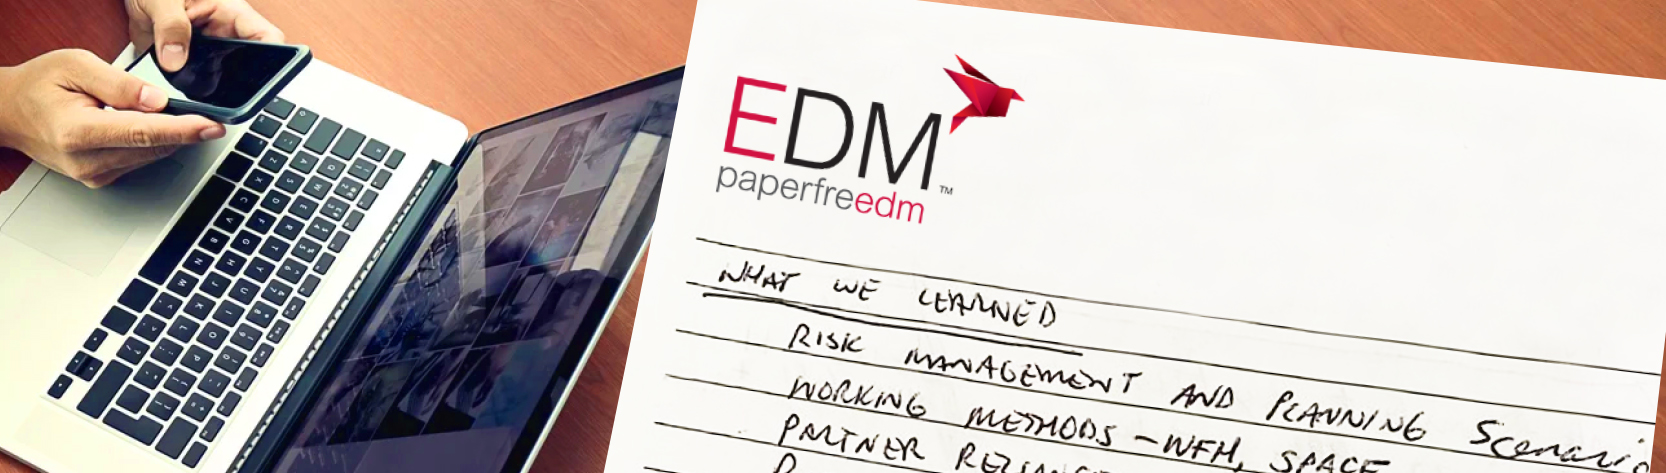 EDM™
paperfreedm
WHAT WE LEARNED
RISK MANAGEMENT AND PLANNING Scenario
WORKING METHODS - WFH, SPACE
PARTNER RELIANCE